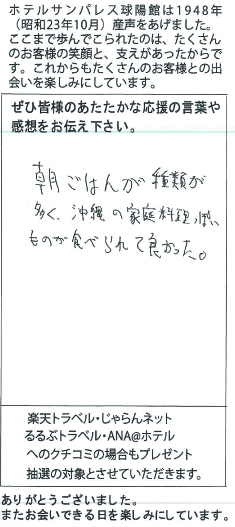 ホテルサンパレス球陽館は1948年
（昭和23年10月）産声をあげました。
ここまで歩んでこられたのは、たくさん
のお客様の笑顔と、支えがあったからで
す。これからもたくさんのお客様との出
会いを楽しみにしています。
ぜひ皆様のあたたかな応援の言葉や
感想をお伝え下さい。
朝ごはんが種類が
多く、沖縄の家庭料理っぽい
ものが食べられて良かった。
楽天トラベル・じゃらんネット
るるぶトラベル・ANA@ホテル
へのクチコミの場合もプレゼント
抽選の対象とさせていただきます。
ありがとうございました。
またお会いできる日を楽しみにしています。